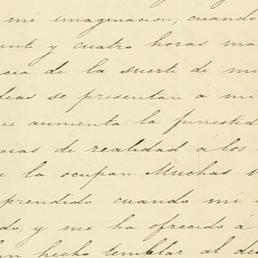 mi imaginacion, cuando
nte y cuatro horas ma
cia de la suerte de m
deas se presentan á mi
ue aumenta la funestid
cias de realidad á los
e la ocupan. Muchas v
prendido cuando mi
do, y me ha ofrecido á
han hecho temblar al de